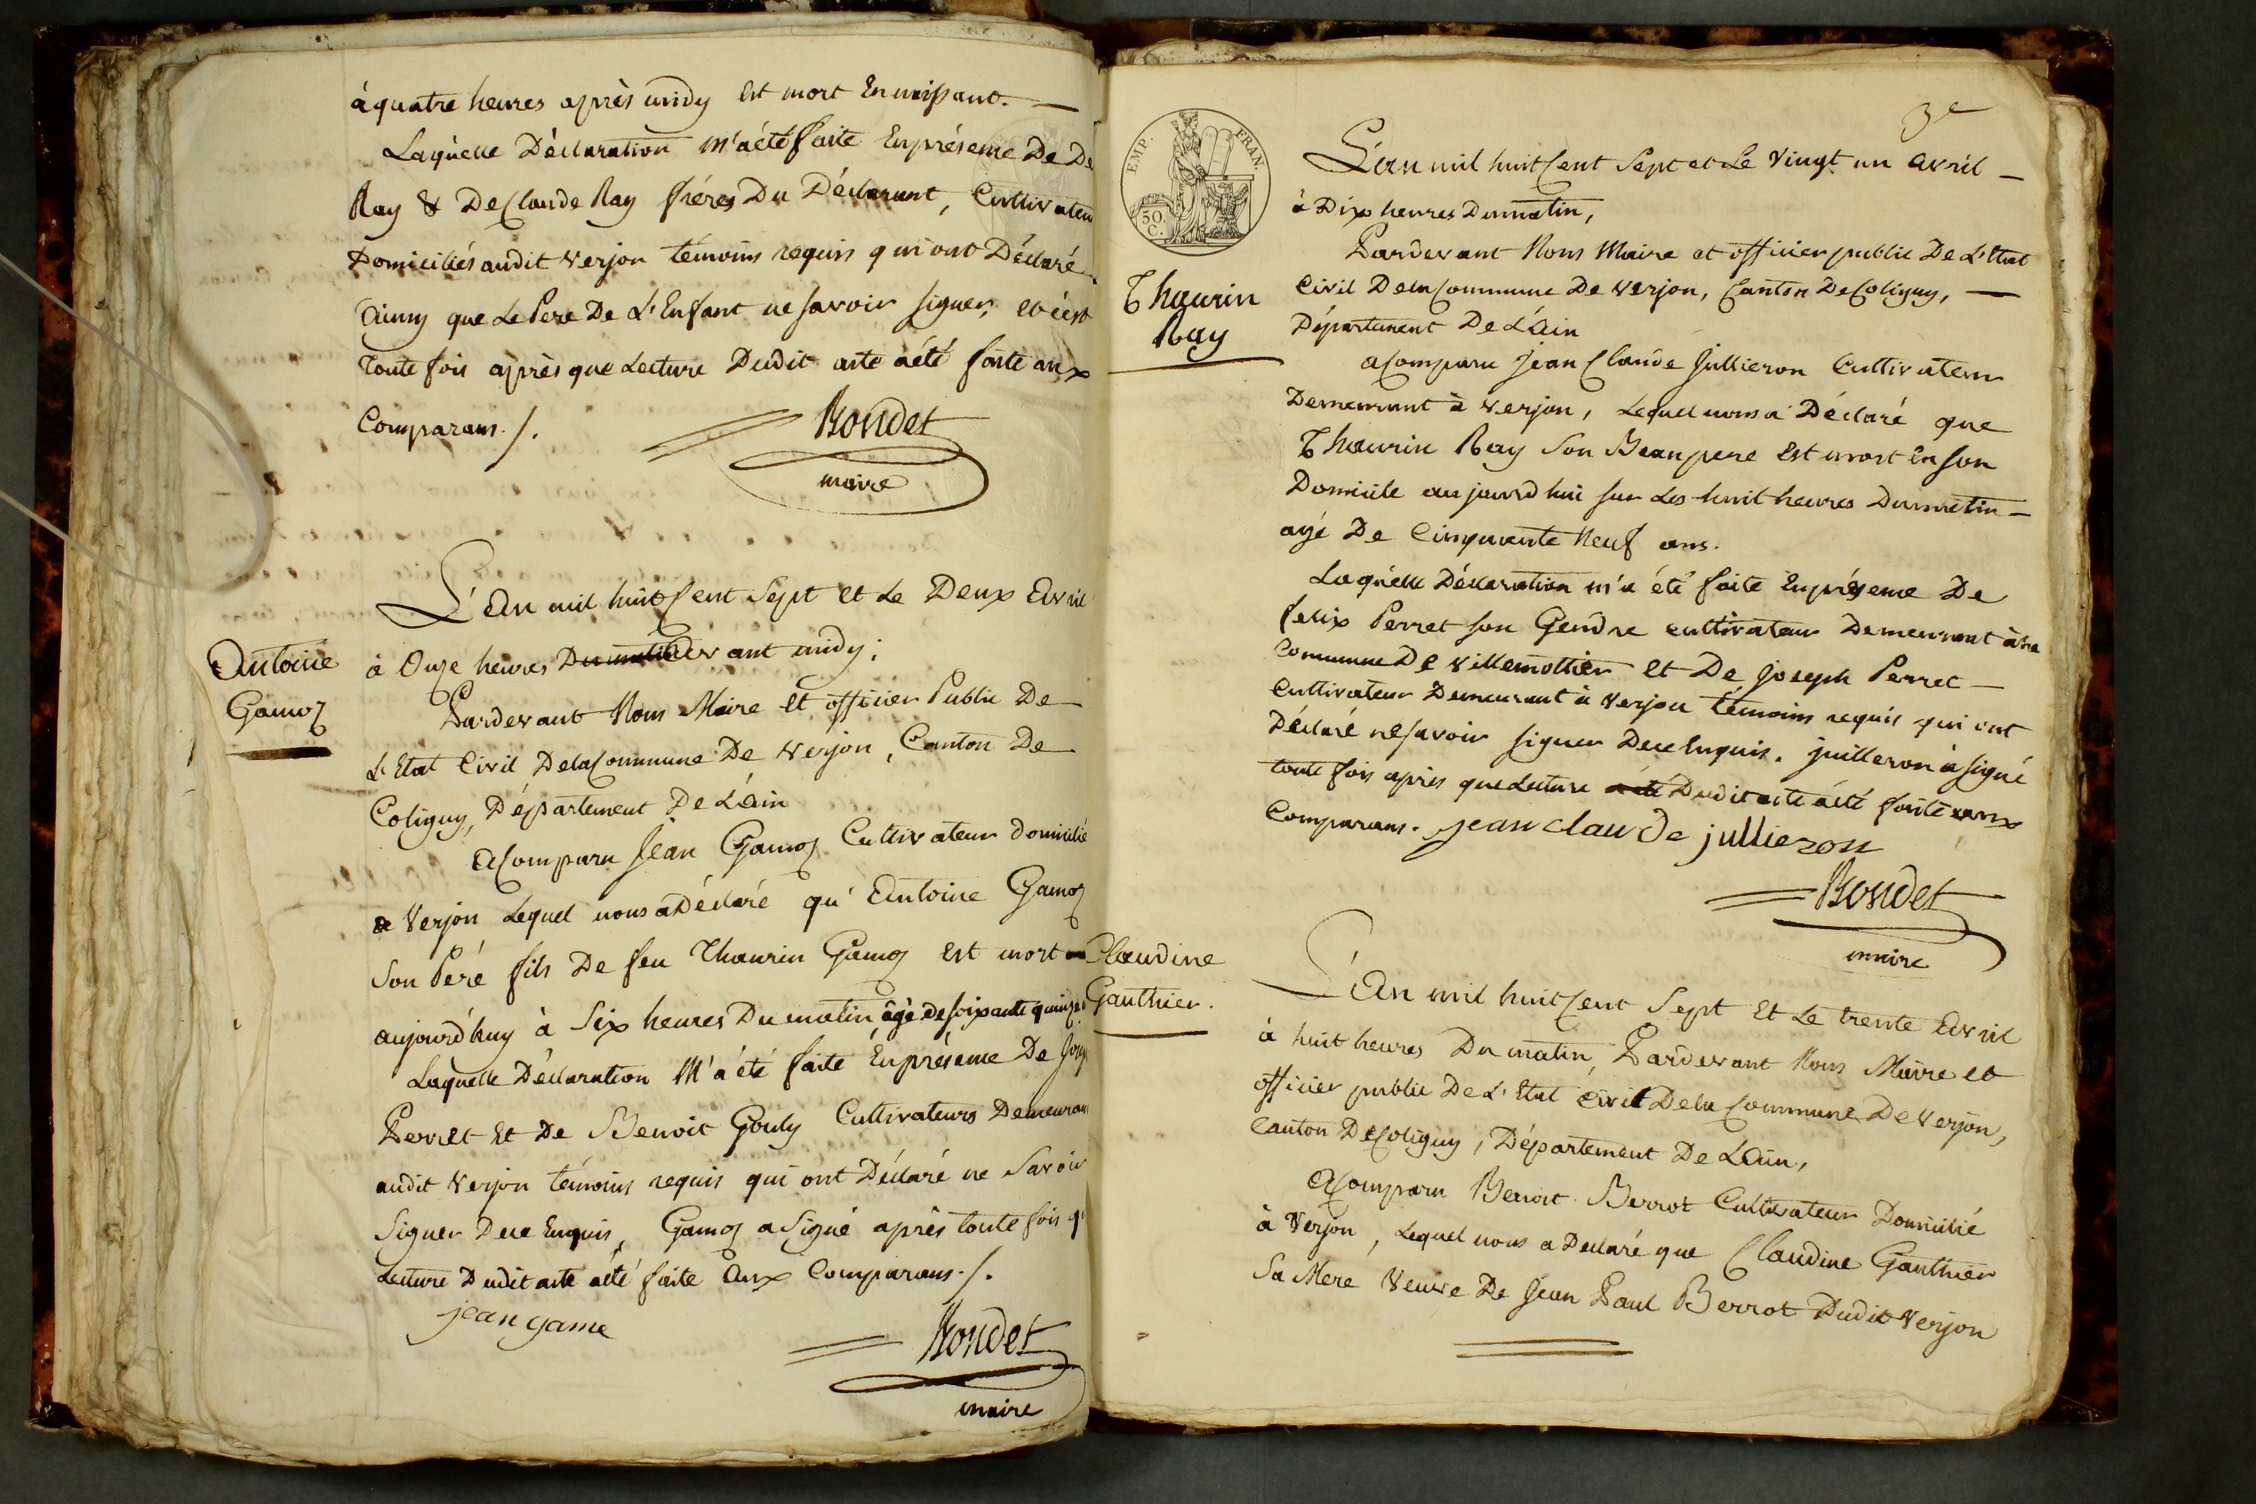 à quatre heures après midy Est mort En naissant. —
Laquelle Déclaration m'a été faite En présence De
Ray & De Claude Ray frères Du Déclarant, Cultivateu
Domiciliés audit Verjon témoins requis qui ont Déclaré
Ainsy que Le Pere De L'Enfant ne savoir signer, et c'est
Toute fois après que Lecture Dudit acte a été faite aux
Comparans./.
Rondet
maire
Antoine
Gamoz
L'An mil huit Cent Sept et Le Deux Avril
à Onze heures Du matin Devant midy;
Pardevant Nous Maire et officier Public De
L'Etat Civil De la Commune De Verjon, Canton De
Coligny, Département De L'Ain
A Comparu Jean Gamoz Cultivateur domicilié
à Verjon Lequel nous a Déclaré qu'Antoine Gamoz
Son Peré fils De feu Thaurin Gamoz est mort
aujourd'huy à Six heures Du matin âgé de soixante quinze
Laquelle Déclaration M'a été faite En présence De Jose
Perret Et De Benoit Gouly Cultivateurs Demeuran
audit Verjon témoins requis qui ont Déclaré ne Savoir
Signer De ce Enquis, Gamoz a Signé après toute fois q'
Lecture Dudit acte a été faite Aux Comparans./.
jean game
Rondet
maire
3e
EMP. FRAN.
50.
C.
Thaurin
Ray
L'an mil huit Cent Sept et Le Vingt un avril —
à Dix heures Du matin,
Pardevant Nous Maire et officier public De L'Etat
Civil De la Commune De Verjon, Canton De Coligny, —
Département De L'Ain
A Comparu Jean Claude Jullieron Cultivateur
Demeurant à Verjon, Lequel nous a Déclaré que
Thaurin Ray Son Beaupere Est mort En son
Domicile aujourd'hui sur Les huit heures Du matin —
agé De Cinquante Neuf ans.
Laquelle Déclaration m'a été faite En présence De
felix Perret son Gendre cultivateur Demeurant à la
Commune De Villemottier Et De Joseph Perret —
Cultivateur Demeurant à Verjon témoins requis qui ont
Déclaré ne savoir signer De ce Enquis. juilleron à signé
toute fois après que Lecture a été Dudit acte a été faite aux
Comparans. jean claude jullieron
Rondet
maire
Claudine
Gauthier.
L'An mil huit Cent Sept Et Le trente Avril
à huit heures Du matin, Pardevant Nous Maire et
officier public De L'Etat Civil De la Commune De Verjon,
Canton De Coligny, Département De L'Ain,
A Comparu Benoit Berrot Cultivateur Domicilié
à Verjon, Lequel nous a Déclaré que Claudine Gauthier
Sa Mere Veuve De Jean Paul Berrot Dudit Verjon